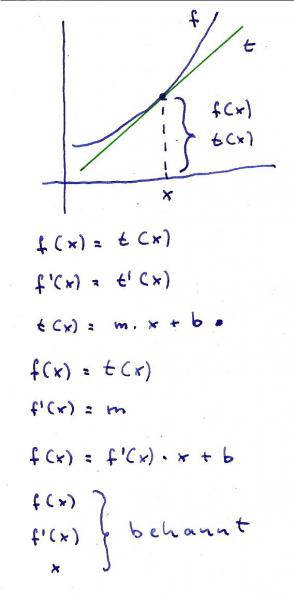 f
t
f(x)
t(x)
x
f(x) = t(x)
f'(x) = t'(x)
t(x) = m · x + b
f(x) = t(x)
f'(x) = m
f(x) = f'(x) · x + b
f(x)
f'(x) bekannt
x